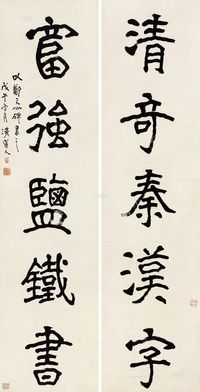 清奇秦漢字
富強鹽鐵書
以鄭文公碑書之
戊午月清道人